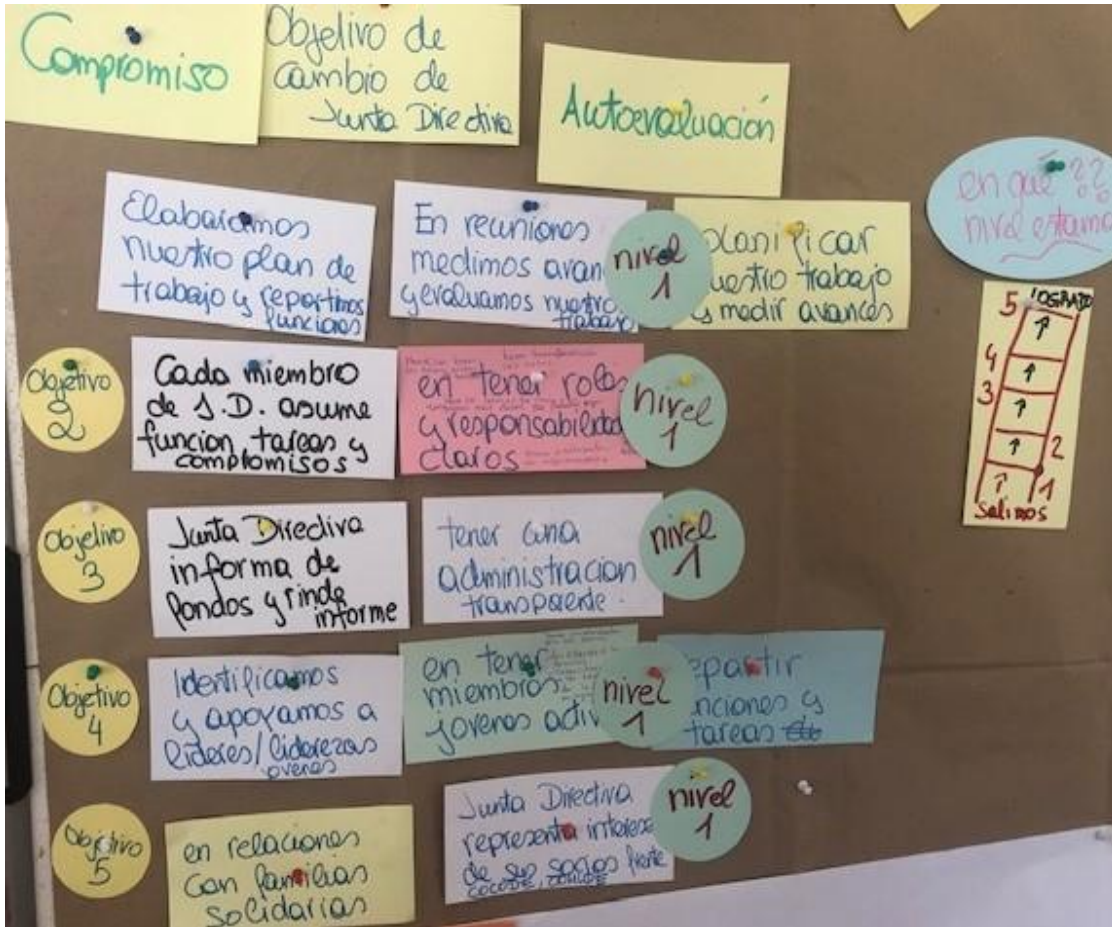 Compromiso
Objetivo de
cambio de
Junta Directiva
Autoevaluación
en que ??
nivel estamo
Elaboramos
nuestro plan de
trabajo y repartimos
funciones
En reuniones
medimos avan
y evaluamos nuestro
trabajo
nivel
1
planificar
uestro trabajo
y medir avances
5 LOGRADO
4
3
2
1
Salimos
Objetivo
2
Cada miembro
de J.D. asume
funcion, tareas y
compromisos
en tener roles
y responsabilidad
claros
nivel
1
Objetivo
3
Junta Directiva
informa de
fondos y rinde
informe
tener una
administracion
transparente.
nivel
1
Objetivo
4
Identificamos
y apoyamos a
lideres/liderezas
jovenes
en tener
miembros
jovenes activ
nivel
1
epartir
nciones y
tareas
Objetivo
5
en relaciones
con familias
solidarias
Junta Directiva
representa interese
de sus socios frente
COCODE, COMUDE
nivel
1